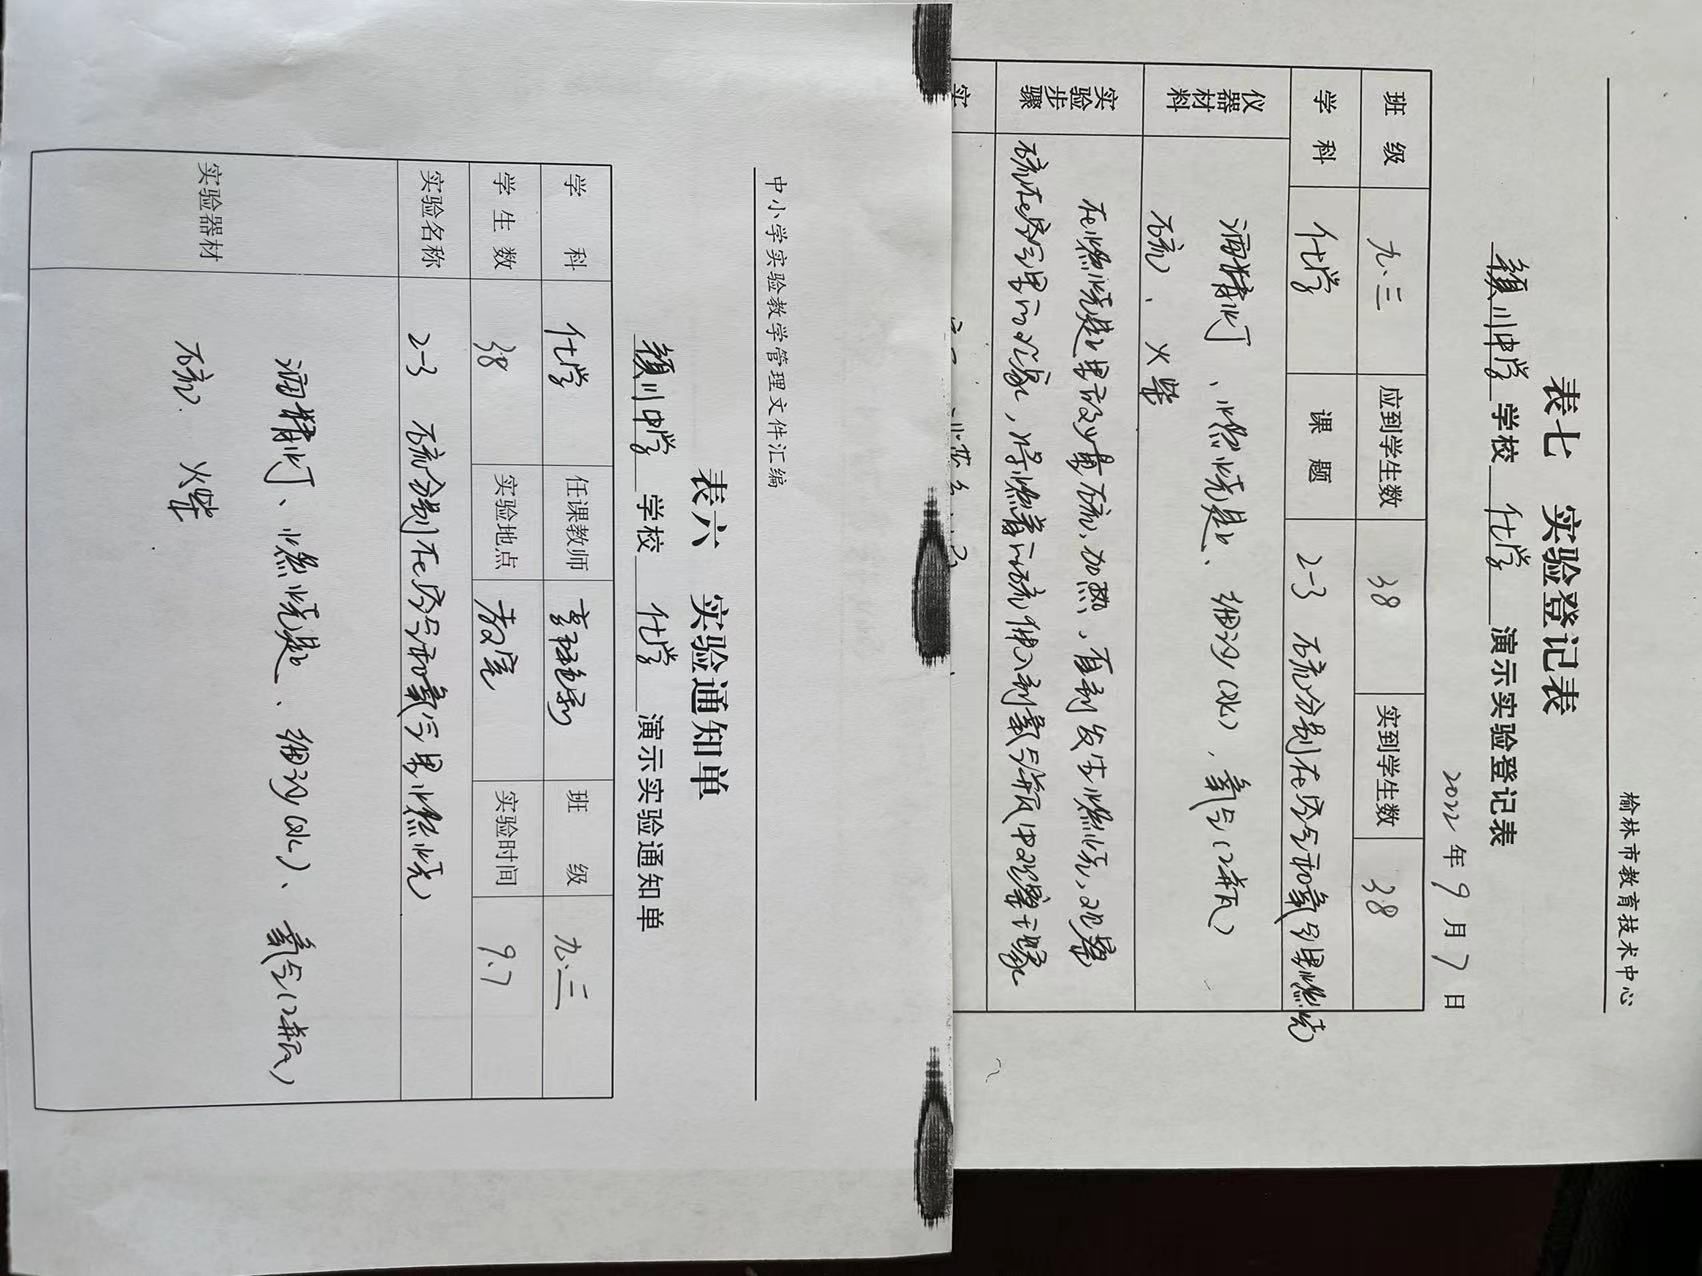 榆林市教育技术中心
表七 实验登记表
颖川中学 学校 化学 演示实验登记表
2022年9月7日
班级 九.三 应到学生数 38 实到学生数 38
学科 化学 课题 2-3 硫分别在空气和氧气里燃烧
仪器材料
酒精灯、燃烧匙、细沙(水)、氧气(2瓶)
硫、火柴
实验步骤
在燃烧匙里放少量硫,加热,直到发生燃烧,观察
硫在空气里的现象,将燃着的硫伸入到氧气瓶中观察现象
实
中小学实验教学管理文件汇编
表六 实验通知单
颖川中学 学校 化学 演示实验通知单
学科 化学 任课教师 班级 九.三
学生数 38 实验地点 教室 实验时间 9.7
实验名称 2-3 硫分别在空气和氧气里燃烧
实验器材
酒精灯、燃烧匙、细沙(水)、氧气(2瓶)
硫、火柴